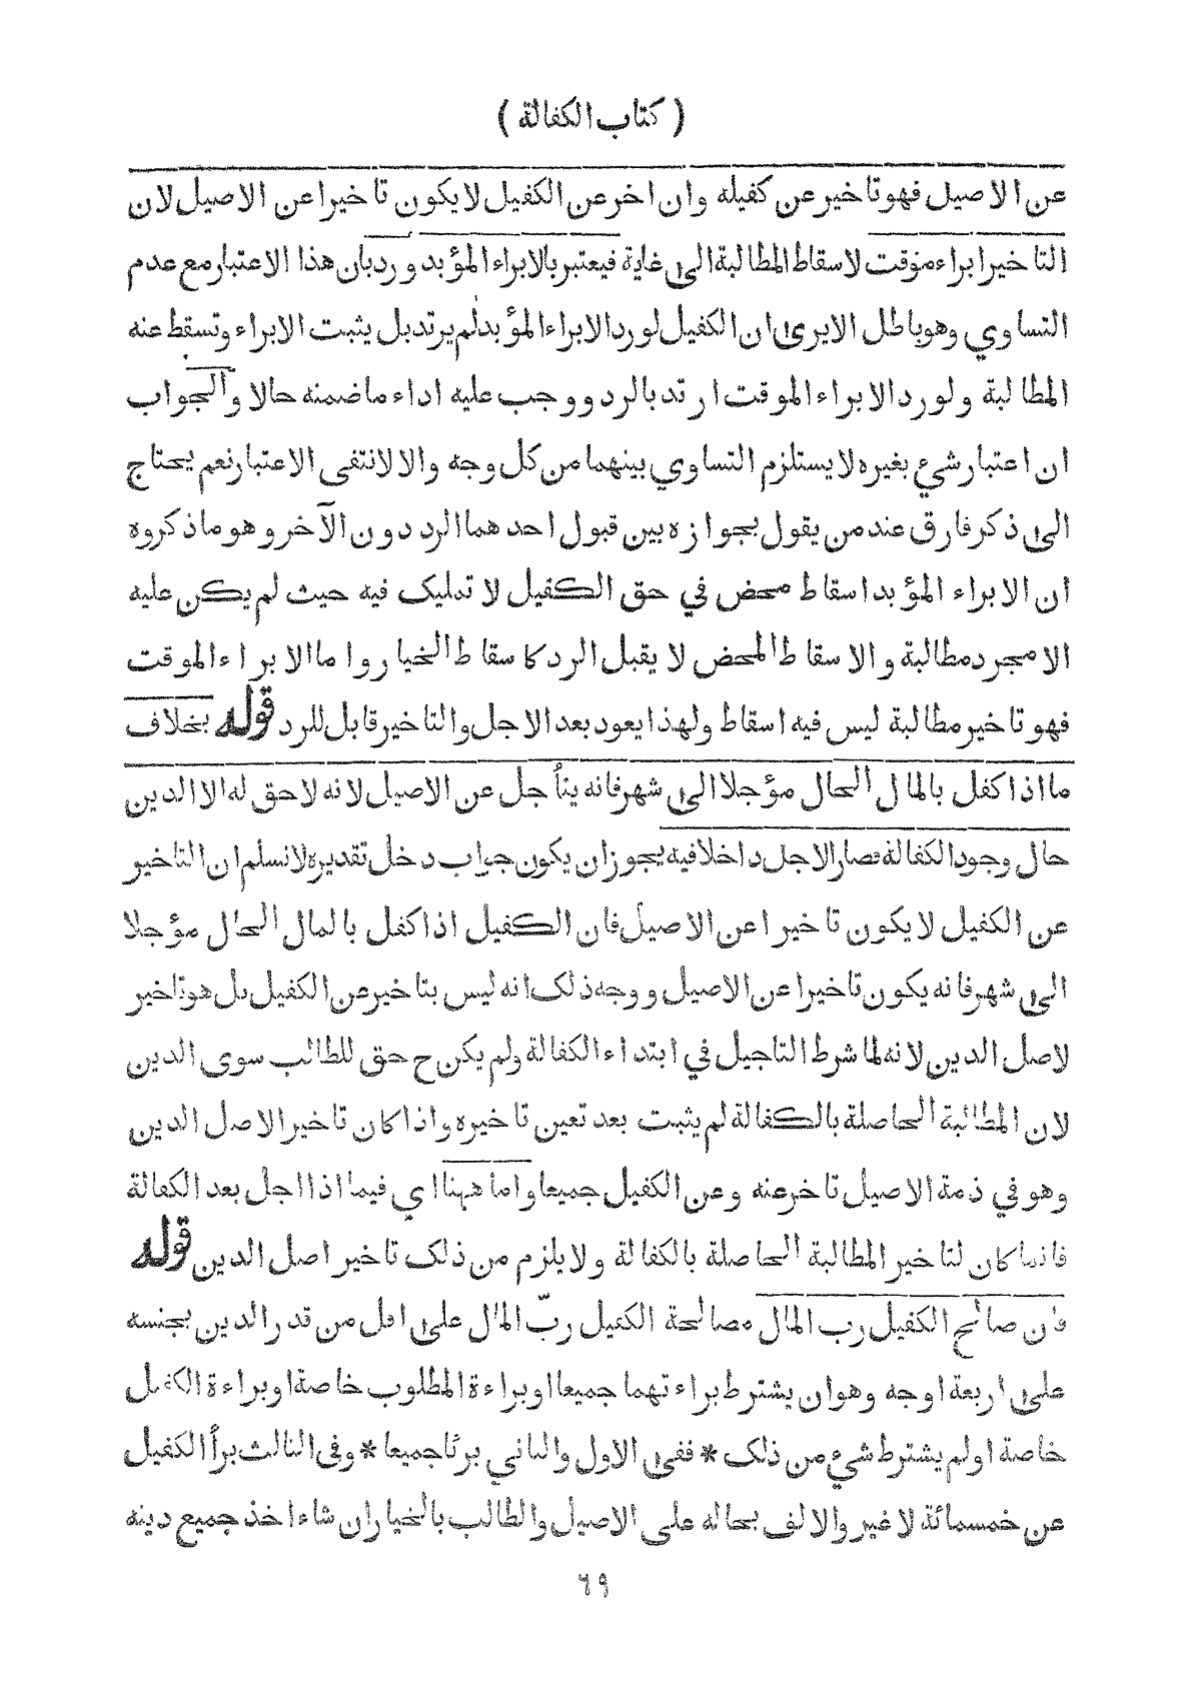 ( كتاب الكفالة )
عن الاصيل فهو تاخير عن كفيله وان اخر عن الكفيل لا يكون تاخيرا عن الاصيل لان
التاخير ابراء موقت لاسقاط المطالبة الى غاية فيعتبر بالابراء المؤبد ورد بان هذا الاعتبار مع عدم
التساوي وهو باطل الا يرى ان الكفيل لو رد الابراء المؤبد لم يرتد بل يثبت الابراء وتسقط عنه
المطالبة ولو رد الابراء الموقت ارتد بالرد ووجب عليه اداء ما ضمنه حالا والجواب
ان اعتبار شيء بغيره لا يستلزم التساوي بينهما من كل وجه والا لانتفى الاعتبار نعم يحتاج
الى ذكر فارق عند من يقول بجوازه بين قبول احدهما الرد دون الآخر وهو ما ذكروه
ان الابراء المؤبد اسقاط محض في حق الكفيل لا تمليك فيه حيث لم يكن عليه
الا مجرد مطالبة والاسقاط المحض لا يقبل الرد كاسقاط الخيار واما الابراء الموقت
فهو تاخير مطالبة ليس فيه اسقاط ولهذا يعود بعد الاجل والتاخير قابل للرد قوله بخلاف
ما اذا كفل بالمال الحال مؤجلا الى شهر فانه يتأجل عن الاصيل لانه لا حق له الا الدين
حال وجود الكفالة فصار الاجل داخلا فيه يجوز ان يكون جواب دخل تقديره لا نسلم ان التاخير
عن الكفيل لا يكون تاخيرا عن الاصيل فان الكفيل اذا كفل بالمال الحال مؤجلا
الى شهر فانه يكون تاخيرا عن الاصيل ووجه ذلك انه ليس بتاخير عن الكفيل بل هو تاخير
لاصل الدين لانه لما شرط التاجيل في ابتداء الكفالة ولم يكن ح حق للطالب سوى الدين
لان المطالبة الحاصلة بالكفالة لم يثبت بعد تعين تاخيره واذا كان تاخير الاصل الدين
وهو في ذمة الاصيل تاخر عنه وعن الكفيل جميعا واما ههنا اي فيما اذا اجل بعد الكفالة
فانما كان لتاخير المطالبة الحاصلة بالكفالة ولا يلزم من ذلك تاخير اصل الدين قوله
فان صالح الكفيل رب المال مصالحة الكفيل ربّ المال على اقل من قدر الدين بجنسه
على اربعة اوجه وهو ان يشترط براءتهما جميعا او براءة المطلوب خاصة او براءة الكفيل
خاصة او لم يشترط شيء من ذلك * ففى الاول والثاني برئا جميعا * وفى الثالث برأ الكفيل
عن خمسمائة لا غير والالف بحاله على الاصيل والطالب بالخيار ان شاء اخذ جميع دينه
٦٩